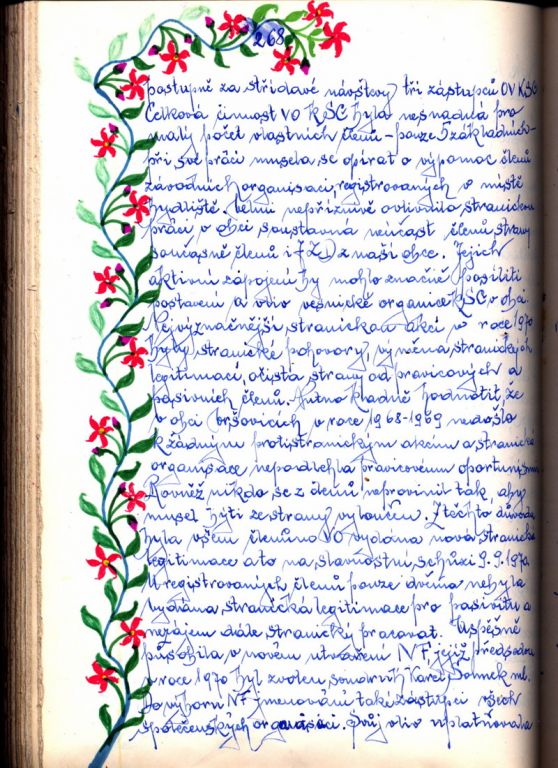 268
postupně za střídavé návštěvy tři zástupců OV KSČ
Celková činnost VO KSČ byla nesnadná pro
malý počet vlastních členů - pouze 5 základních -
při své práci musela se opírat o výpomoc členů
závodních organisací, registrovaných v místě
bydliště. Velmi nepříznivě ovlivnila stranickou
práci v obci soustavná neúčast členů strany
současně členů i JZD z naší obce. Jejich
aktivní zapojení by mohlo značně posíliti
postavení a vliv vesnické organice KSČ v obci.
Nejvýznačnější stranickou akcí v roce 1970
byly stranické pohovory, výměna stranických
legitimací, očista strany od pravicových a
pasivních členů. Nutno kladně hodnotit, že
v obci Oršovicích v roce 1968-1969 nedošlo
k žádným protistranickým akcím a stranická
organisace nepodlehla pravicovému oportunismu
Rovněž nikdo se z členů neprovinil tak, aby
musel býti ze strany vyloučen. Z těchto důvodů
byla všem členům VO vydána nová stranická
legitimace a to na slavnostní schůzi 9.9.1970.
U registrovaných členů pouze dvěma nebyla
vydána stranická legitimace pro pasivitu a
nezájem dále stranicky pracovat. Úspěšně
působila v novém utvoření NF, jejíž předsedou
v roce 1970 byl zvolen soudruh Karel ml.
Do výboru NF jmenováni také zástupci všech
společenských organisací. Svůj vliv uplatňovala